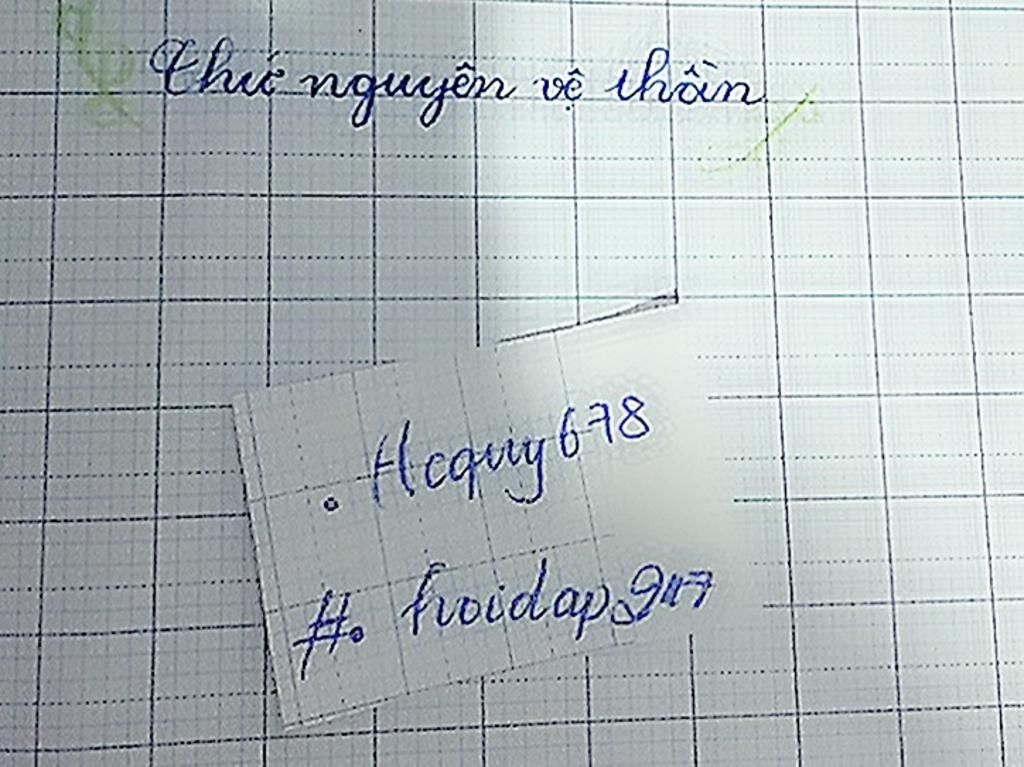 Thức nguyên vệ thần
. Hcquy678
#. hoidap247